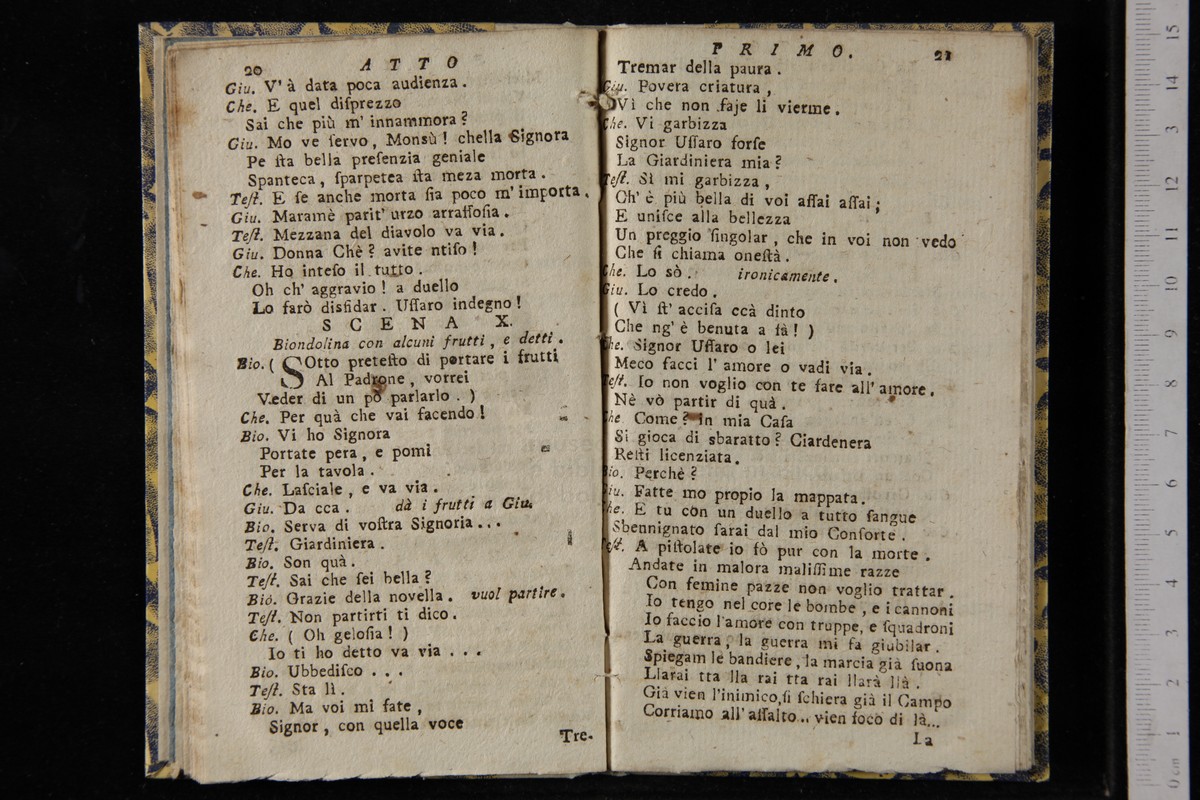 20 ATTO
Giu. V' à data poca audienza.
Che. E quel diſprezzo
Sai che più m' innammora?
Giu. Mo ve ſervo, Monsù! chella Signora
Pe ſta bella preſenzia geniale
Spanteca, ſparpetea ſta meza morta.
Teſt. E ſe anche morta ſia poco m' importa.
Giu. Maramè parit' urzo arraſſoſia.
Teſt. Mezzana del diavolo va via.
Giu. Donna Chè? avite ntiſo!
Che. Ho inteſo il tutto.
Oh ch' aggravio! a duello
Lo farò disfidar. Uſſaro indegno!
SCENA X.
Biondolina con alcuni frutti, e detti.
Bio. ( SOtto preteſto di portare i frutti
Al Padrone, vorrei
Veder di un pò parlarlo. )
Che. Per quà che vai facendo!
Bio. Vi ho Signora
Portate pera, e pomi
Per la tavola.
Che. Laſciale, e va via.
Giu. Da cca. dà i frutti a Giu.
Bio. Serva di voſtra Signoria...
Teſt. Giardiniera.
Bio. Son quà.
Teſt. Sai che ſei bella?
Bio. Grazie della novella. vuol partire.
Teſt. Non partirti ti dico.
Che. ( Oh geloſia! )
Io ti ho detto va via...
Bio. Ubbediſco...
Teſt. Sta lì.
Bio. Ma voi mi fate,
Signor, con quella voce
Tre-
PRIMO. 21
Tremar della paura.
Giu. Povera criatura,
Vì che non faje li vierme.
Che. Vi garbizza
Signor Uſſaro forſe
La Giardiniera mia?
Teſt. Sì mi garbizza,
Ch' è più bella di voi aſſai aſſai;
E uniſce alla bellezza
Un preggio ſingolar, che in voi non vedo
Che ſi chiama oneſtà.
Che. Lo sò. ironicamente.
Giu. Lo credo.
( Vì ſt' acciſa ccà dinto
Che ng' è benuta a fà! )
Che. Signor Uſſaro o lei
Meco facci l' amore o vadi via.
Teſt. Io non voglio con te fare all' amore.
Nè vò partir di quà.
Che Come? in mia Caſa
Si gioca di sbaratto? Giardenera
Reſti licenziata.
Bio. Perchè?
Giu. Fatte mo propio la mappata.
Che. E tu con un duello a tutto ſangue
Sbennignato ſarai dal mio Conforte.
Teſt. A piſtolate io fò pur con la morte.
Andate in malora maliſſime razze
Con femine pazze non voglio trattar.
Io tengo nel core le bombe, e i cannoni
Io faccio l'amore con truppe, e ſquadroni
La guerra, la guerra mi fa giubilar.
Spiegam le bandiere, la marcia già ſuona
Llarai tta lla rai tta rai llarà llà.
Già vien l'inimico, ſi ſchiera già il Campo
Corriamo all' aſſalto.. vien foco di là...
La